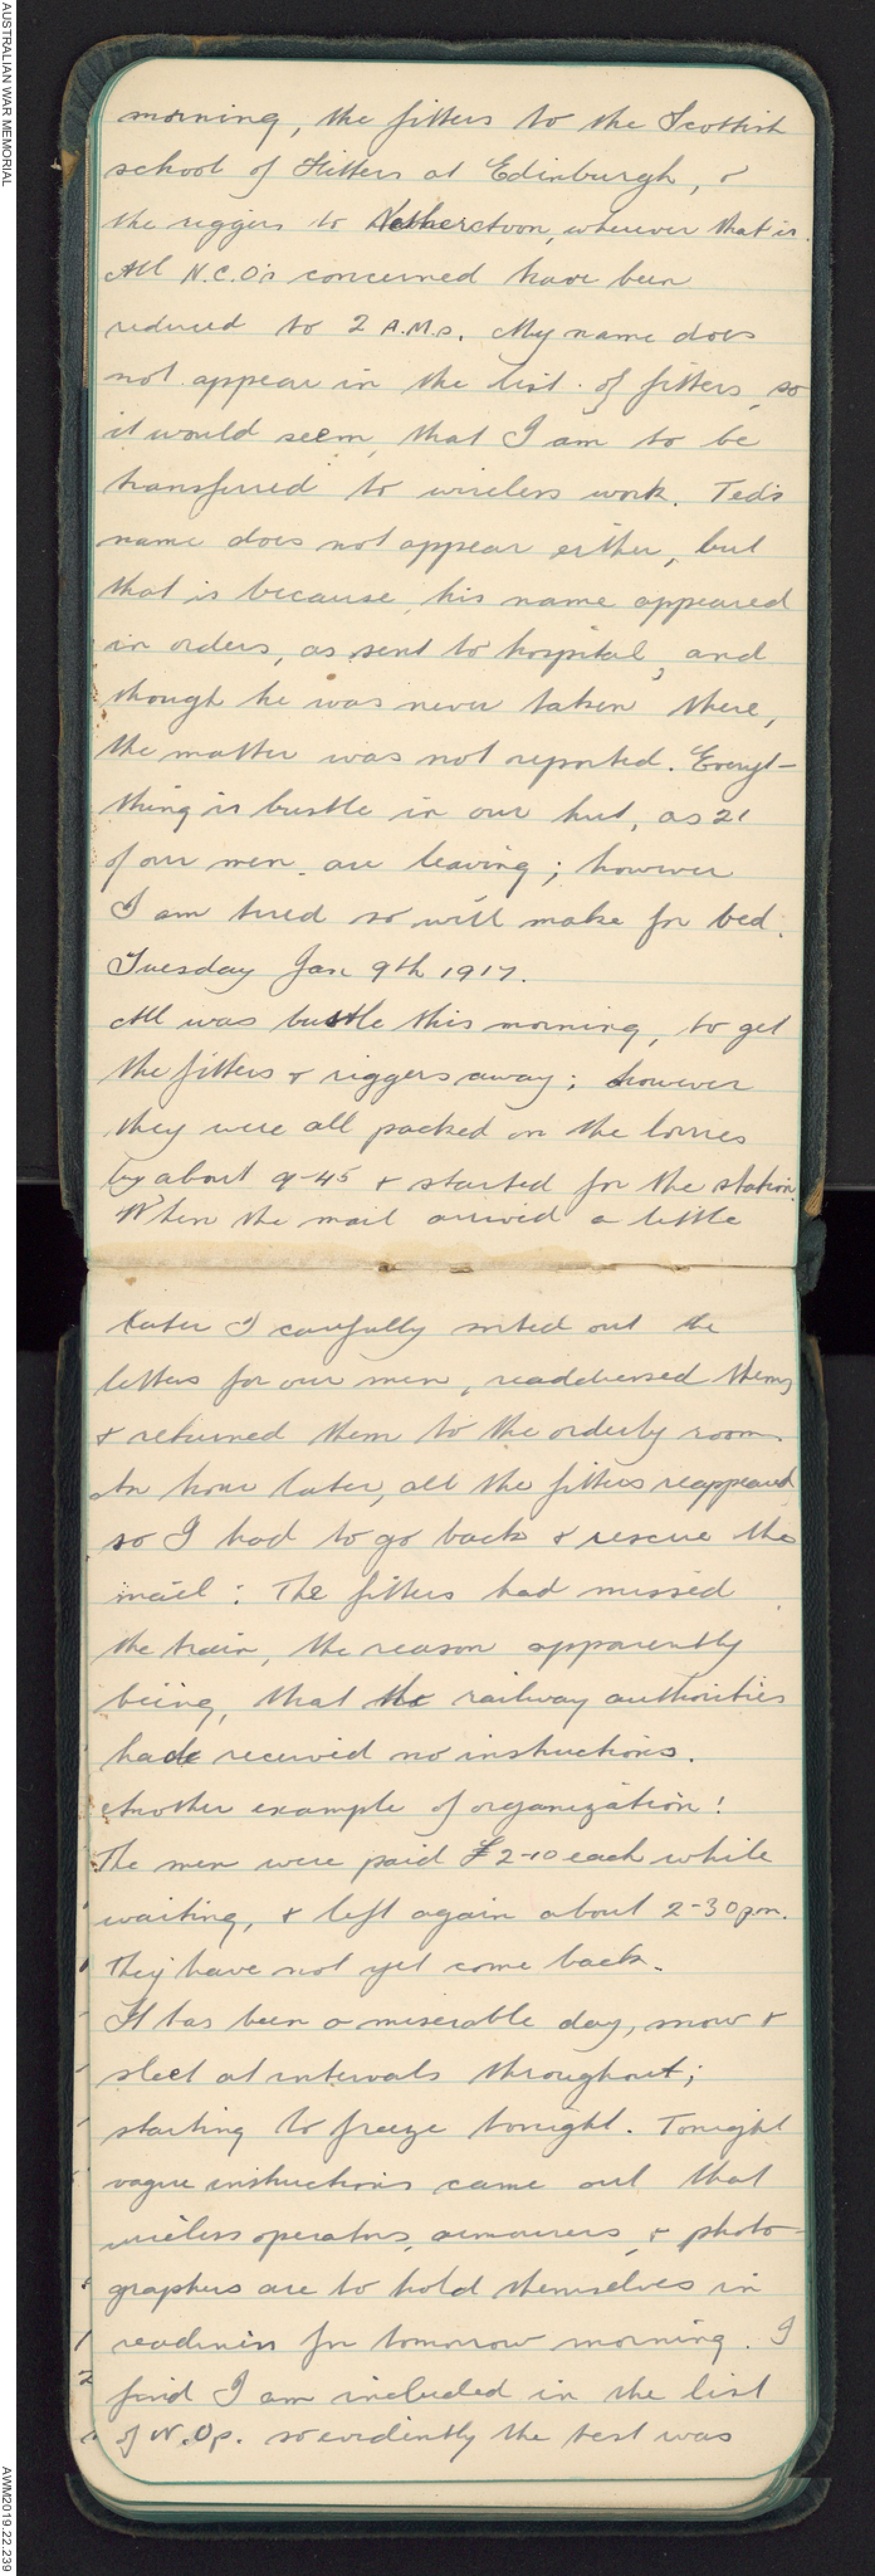 AUSTRALIAN WAR MEMORIAL
morning, the fitters to the Scottish
school of Fitters at Edinburgh, &
the riggers to Netherctvon, wherever that is.
All N.C.O's concerned have been
reduced to 2 A.M.s. My name does
not appear in the list of fitters, so
it would seem, that I am to be
transferred to wireless work. Ted's
name does not appear either, but
that is because, his name appeared
in orders, as sent to hospital, and
though he was never taken there,
the matter was not reported. Everyt-
thing is bustle in our hut, as 21
of our men are leaving; however
I am tired so will make for bed.
Tuesday Jan 9th 1917.
All was bustle this morning, to get
the fitters & riggers away; however
they were all packed on the lorries
by about 9-45 & started for the station.
When the mail arrived a little
later I carefully sorted out the
letters for our men, readdressed them,
& returned them to the orderly room.
An hour later, all the fitters reappeared
so I had to go back & rescue the
mail: The fitters had missed
the train, the reason apparently
being, that the railway authorities
had received no instructions.
Another example of organization!
The men were paid £2-10 each while
waiting, & left again about 2-30 pm.
They have not yet come back.
It has been a miserable day, snow &
sleet at intervals throughout;
starting to freeze tonight. Tonight
vague instructions came out that
wireless operators, armourers, & photo-
graphers are to hold themselves in
readiness for tomorrow morning. I
find I am included in the list
of W.Op. so evidently the test was
AWM2019.22.239